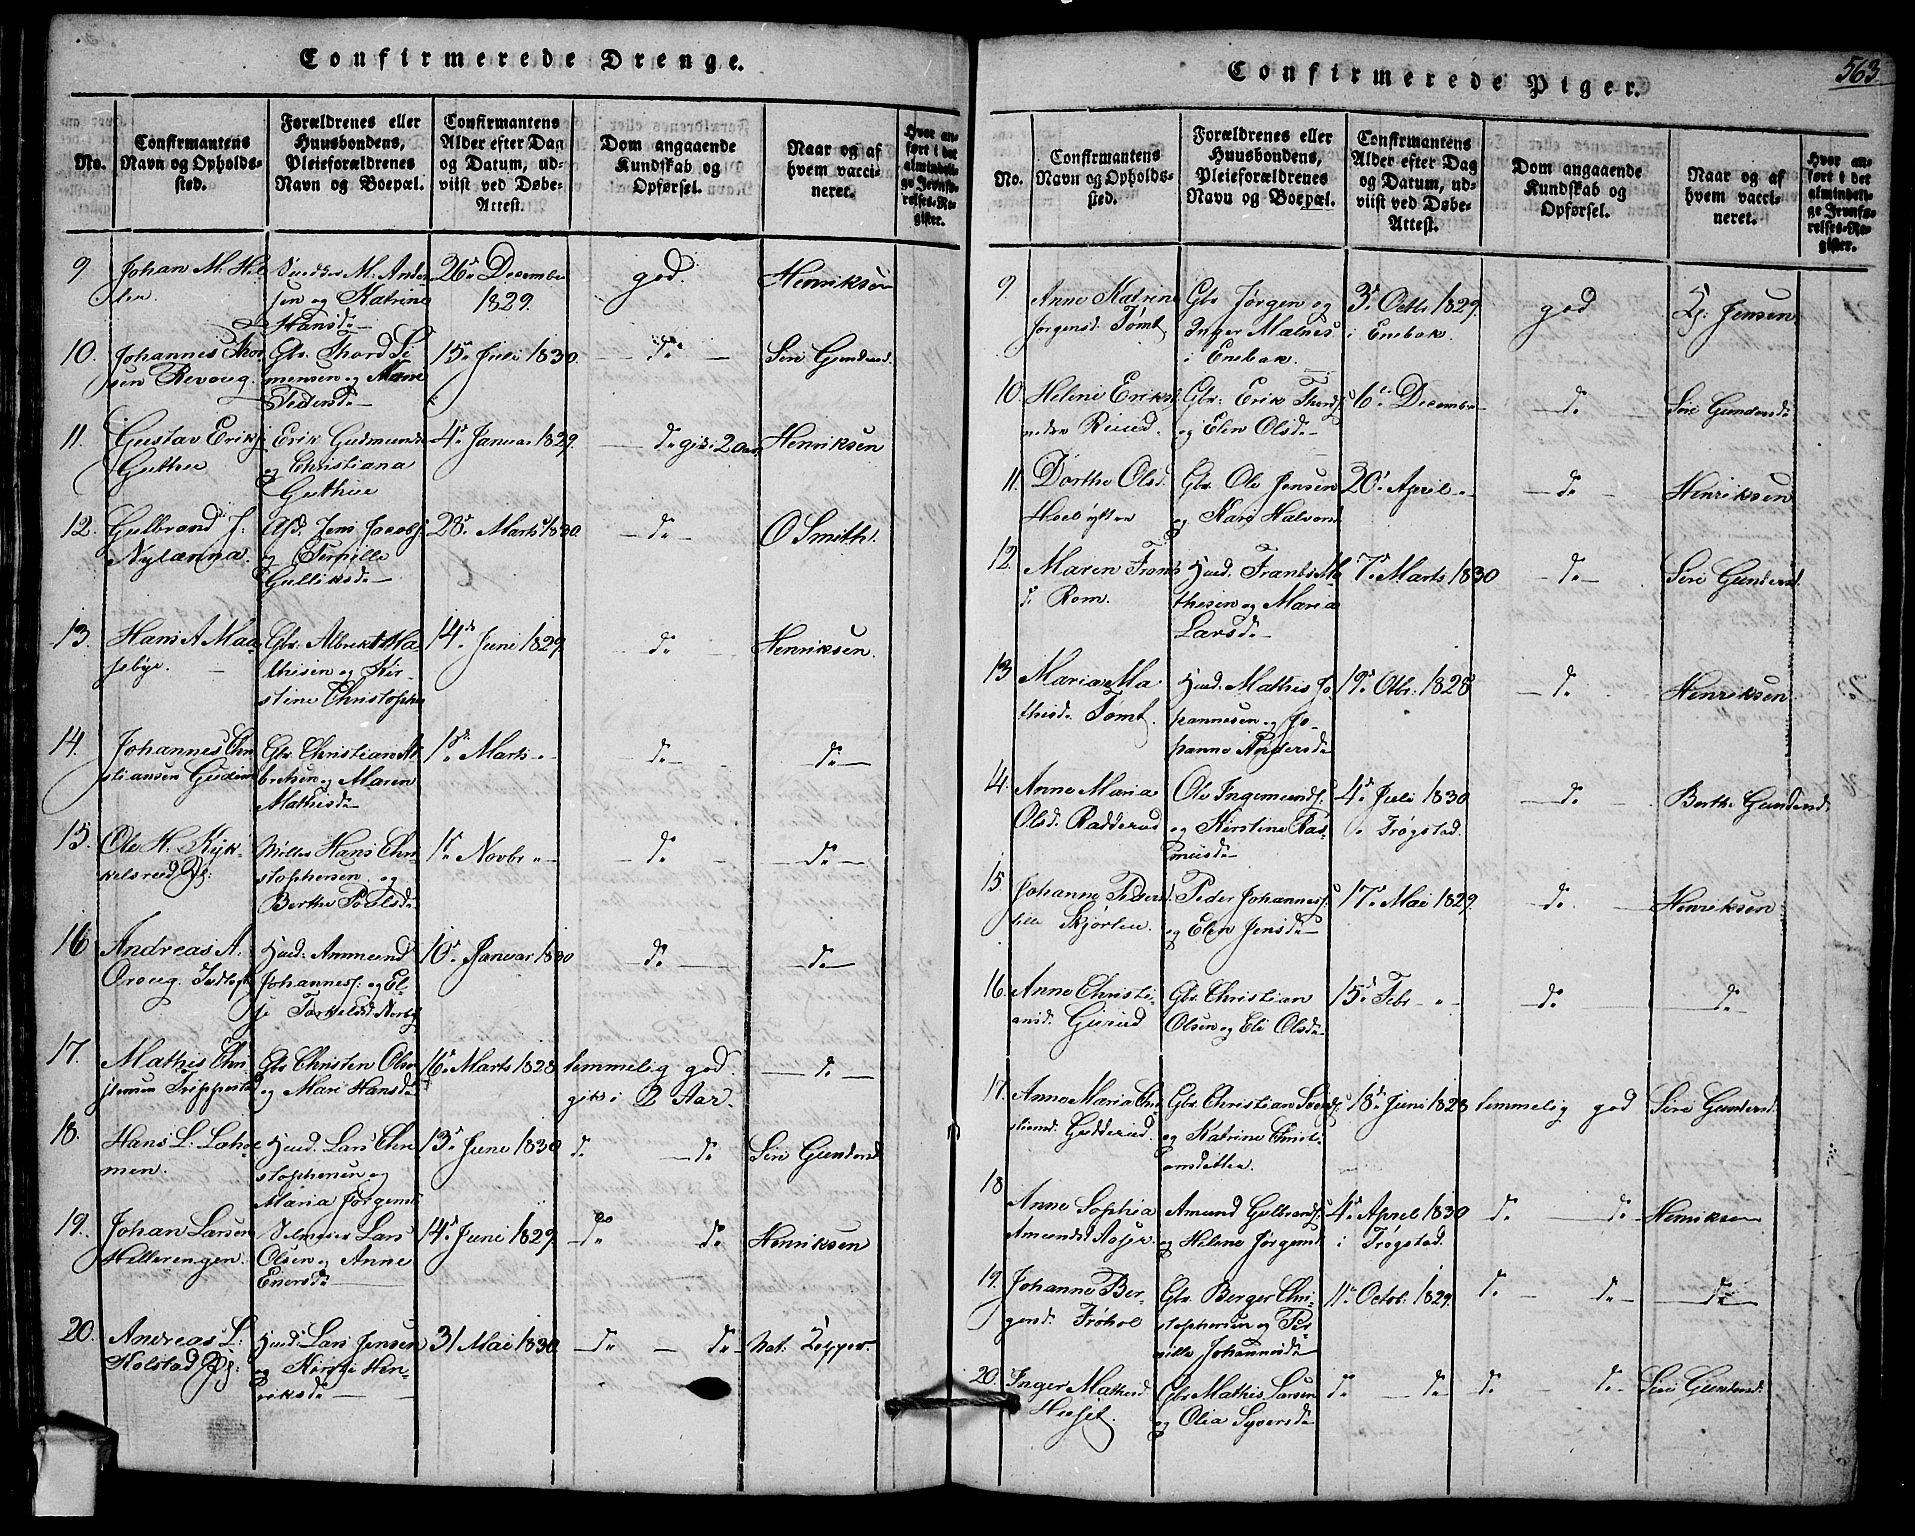 563
Confirmerede Drenge.
No.
Confirmantens
Navn og Opholds-
sted.
Forældrenes eller
Huusbondens,
Pleieforældrenes
Navn og Boepæl.
Confirmantens
Alder efter Dag
og Datum, ud-
viist ved Døbe-
Attest.
Dom angaaende
Kundskab og
Opførsel.
Naar og af
hvem vacci-
neret.
Hvor an-
ført i det
almindeli-
ge Jevnfø-
relses-Re-
gister.
9. Johan M.
Anders
sen og Katrine
Hansd.
26 December
1829.
god.
Henriksen
10. Johannes Thor
sen Revoug.
Gbr. Thord Si
mensen og Marie
Pedersd.
15 Juli 1830.
do
Siri Gundersd.
11. Gustav Eriks.
Guthu
Erik Gudmunds
og Christiana
Guthue
4 Januar 1829.
do gik i 2 Aar
Henriksen
12. Gulbrand J.
Nylænna.
Jens Jacobs.
og Pernille
Gulliksd.
28 Marts 1830.
do
O Smith.
13. Hans A. Maa
sebye.
Gbr. Albrekt Ma
thisen og Kir-
stine Christophe
14 Juni 1829.
do
Henriksen.
14. Johannes Chri
stiansen Gudim
Gbr. Christian Al
bretsen og Maren
Mathisd.
18 Marts "
do
do
15. Ole H. Kyk-
kelsrud
Møller Hans Chri-
stophersen og
Berthe Poulsd.
1 Novbr "
do
do
16. Andreas A.
Oroug.
Huusd. Ammund
Johanness. og El-
se Torkelsd.
10 Januar 1830
do
do
17. Mathis Chri
stensen Trippestad
Gbr Christen Olsen
og Mari Hansd.
16 Marts 1828
temmelig god.
gik i 2 Aar.
do
18. Hans L. Lahol
men.
Huusd. Lars Chri
stophersen og
Maria Jørgensd
13 Juni 1830
do do
Siri Gundersd
19. Johan Larsen
Hellerengen.
Lars
Olsen og Anne
Enersd.
14 Juni 1829.
do do
Henriksen
20. Andreas L.
Kolstad
Huusd. Lars Jensen
og Kirsti Hen-
riksd.
31 Mai 1830
do do
Nat. Zepper.
Confirmerede Piger.
No.
Confirmantens
Navn og Opholds-
sted.
Forældrenes eller
Huusbondens,
Pleieforældrenes
Navn og Boepæl.
Confirmantens
Alder efter Dag
og Datum, ud-
viist ved Døbe-
Attest.
Dom angaaende
Kundskab og
Opførsel.
Naar og af
hvem vacci-
neret.
Hvor an-
ført i det
almindeli-
ge Jevnfø-
relses-Re-
gister.
9. Anne Katrine
Jørgensd. Tømt
Gbr Jørgen og
Inger Malnes
i Enebak.
3 Octbr 1829.
i Enebak.
god
Jensen
10. Helene Eriks
Ruud.
Gbr. Erik Thords.
og Elen Olsd.
6 December
do
Siri Gundersd.
11. Dorthe Olsd.
Gbr. Ole Jensen
og Kari Halvorsd
20 April "
do
Henriksen
12. Maren Frants
d. Rom.
Huusd. Frants Ma
thisen og Maria
Larsd.
7 Marts 1830
do
Siri Gundersd.
13. Maria Ma
thisd. Tømt.
Huusd. Mathis Jo
hannesen og Jo-
hanne Andersd.
19 Otbr. 1828
do
Henriksen
14. Anne Maria
Olsd. Radderud
Ole Ingemunds.
og Kirstine Ras-
musd.
4 Juli 1830
Trøgstad.
do
Berthe Gundersd.
15. Johanne Peders
Skjørten.
Peder Johanness.
og Elen Jensd.
17 Mai 1829.
do
Henriksen
16. Anne Christi-
ansd. Gurud
Gbr. Christian
Olsen og Eli Olsd.
15 Febr "
do
do
17. Anne Maria Chri
stiansd. Gudderud.
Gbr. Christian Svends.
og Katrine Christi
ansdatter.
18 Juni 1828
temmelig god
Siri Gundersd.
18. Anne Sophia
Amundsd.
Amund Gulbrands.
og Helene Jørgensd
4 April 1830
i Trøgstad.
do do
Henriksen
19. Johanne Ber-
gersd. Frøhol
Gbr. Berger Chri-
stophersen og Per-
nille Johannesd.
11 Octbr. 1829.
do do
do
20. Inger Mathisd
Huset.
Gbr. Mathis Larsen
og Olia Syversd.
do do
do do
Siri Gundersd.